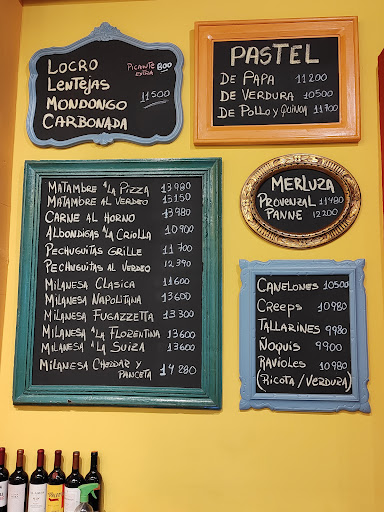 LOCRO PICANTE EXTRA 800
LENTEJAS
MONDONGO 11500
CARBONADA
PASTEL
DE PAPA 11200
DE VERDURA 10500
DE POLLO Y QUINOA 11700
MATAMBRE "LA PIZZA 13980
MATAMBRE AL VERDEO 13150
CARNE AL HORNO 13980
ALBONDIGAS "LA CRIOLLA 10900
PECHUGUITAS GRILLE 11700
PECHUGUITAS AL VERDEO 12390
MILANESA CLASICA 11600
MILANESA NAPOLITANA 13600
MILANESA FUGAZZETTA 13300
MILANESA "LA FLORENTINA 13600
MILANESA "LA SUIZA 13600
MILANESA CHEDDAR Y
PANCETA 14280
MERLUZA
PROVENZAL 11480
PANNE 12200
CANELONES 10500
CREEPS 10980
TALLARINES 9980
ÑOQUIS 9900
RAVIOLES 10980
(RICOTA/VERDURA)